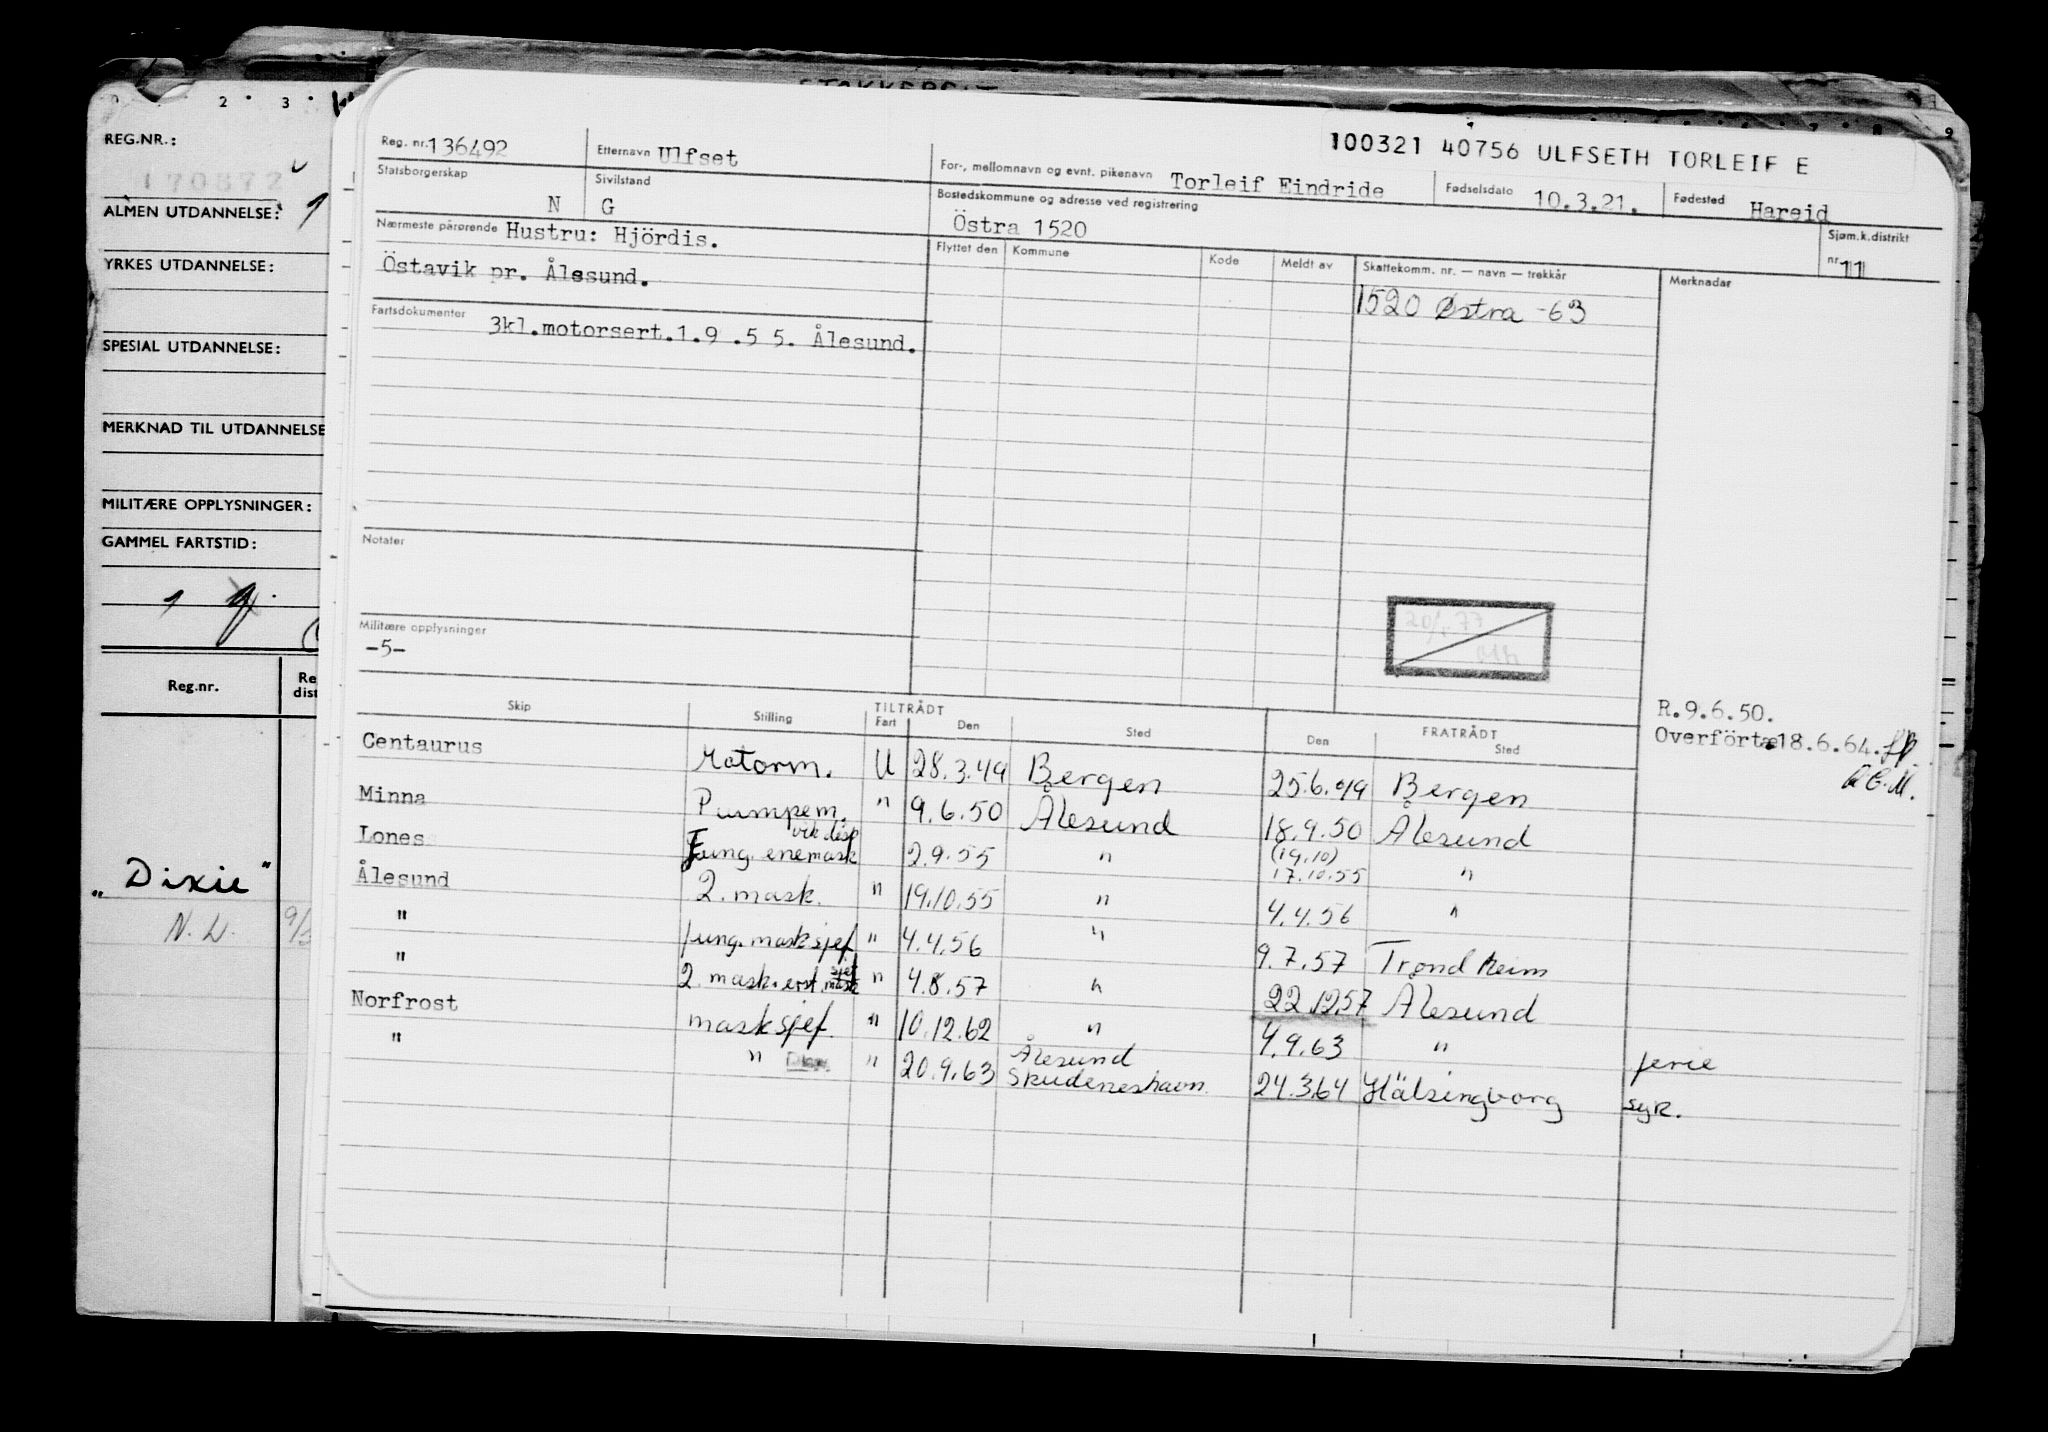 STAKKERSET
2 3
REG.NR.:
170572
ALMEN UTDANNELSE: 1
YRKES UTDANNELSE:
SPESIAL UTDANNELSE:
MERKNAD TIL UTDANNELSE
MILITÆRE OPPLYSNINGER:
GAMMEL FARTSTID:
Reg.nr. Re
dist
"Dixie"
N.L. 9/3
100321 40756 ULFSETH TORLEIF E
Reg. nr. 136492 Etternavn Ulfset For-, mellomnavn og evnt. pikenavn Torleif Eindride Fødselsdato 10.3.21. Fødested Hareid
Statsborgerskap N Sivilstand G Bostedskommune og adresse ved registrering Östra 1520 Sjøm.k.distrikt nr. 11
Nærmeste pårørende Hustru: Hjördis.
Östavik pr. Ålesund.
Flyttet den Kommune Kode Meldt av Skattekomm. nr. — navn — trekkår Merknader
1520 Østra -63
Fartsdokumenter 3kl.motorsert.1.9 .5 5. Ålesund.
Notater
20/1 77
Militære opplysninger
-5-
R.9.6.50.
Overfört 18.6.64.
Skip Stilling TILTRÅDT Fart Den Sted FRATRÅDT Den Sted
Centaurus Motorm. U 28.3.49 Bergen 25.6.49 Bergen
Minna Pumpem. " 9.6.50 Ålesund 18.9.50 Ålesund
Lones Fung. enemask vik disp 2.9.55 " (19.10) 17.10.55 "
Ålesund 2. mask. " 19.10.55 " 4.4.56 "
" fung. masksjef. " 4.4.56 " 9.7.57 Trondheim
" 2. mask. erst. mask sjef " 4.8.57 " 22.12.57 Ålesund
Norfrost masksjef. " 10.12.62 " 4.9.63 " ferie
" " Disp. " 20.9.63 Ålesund Skudeneshavn. 24.3.64 Hälsingborg syk.